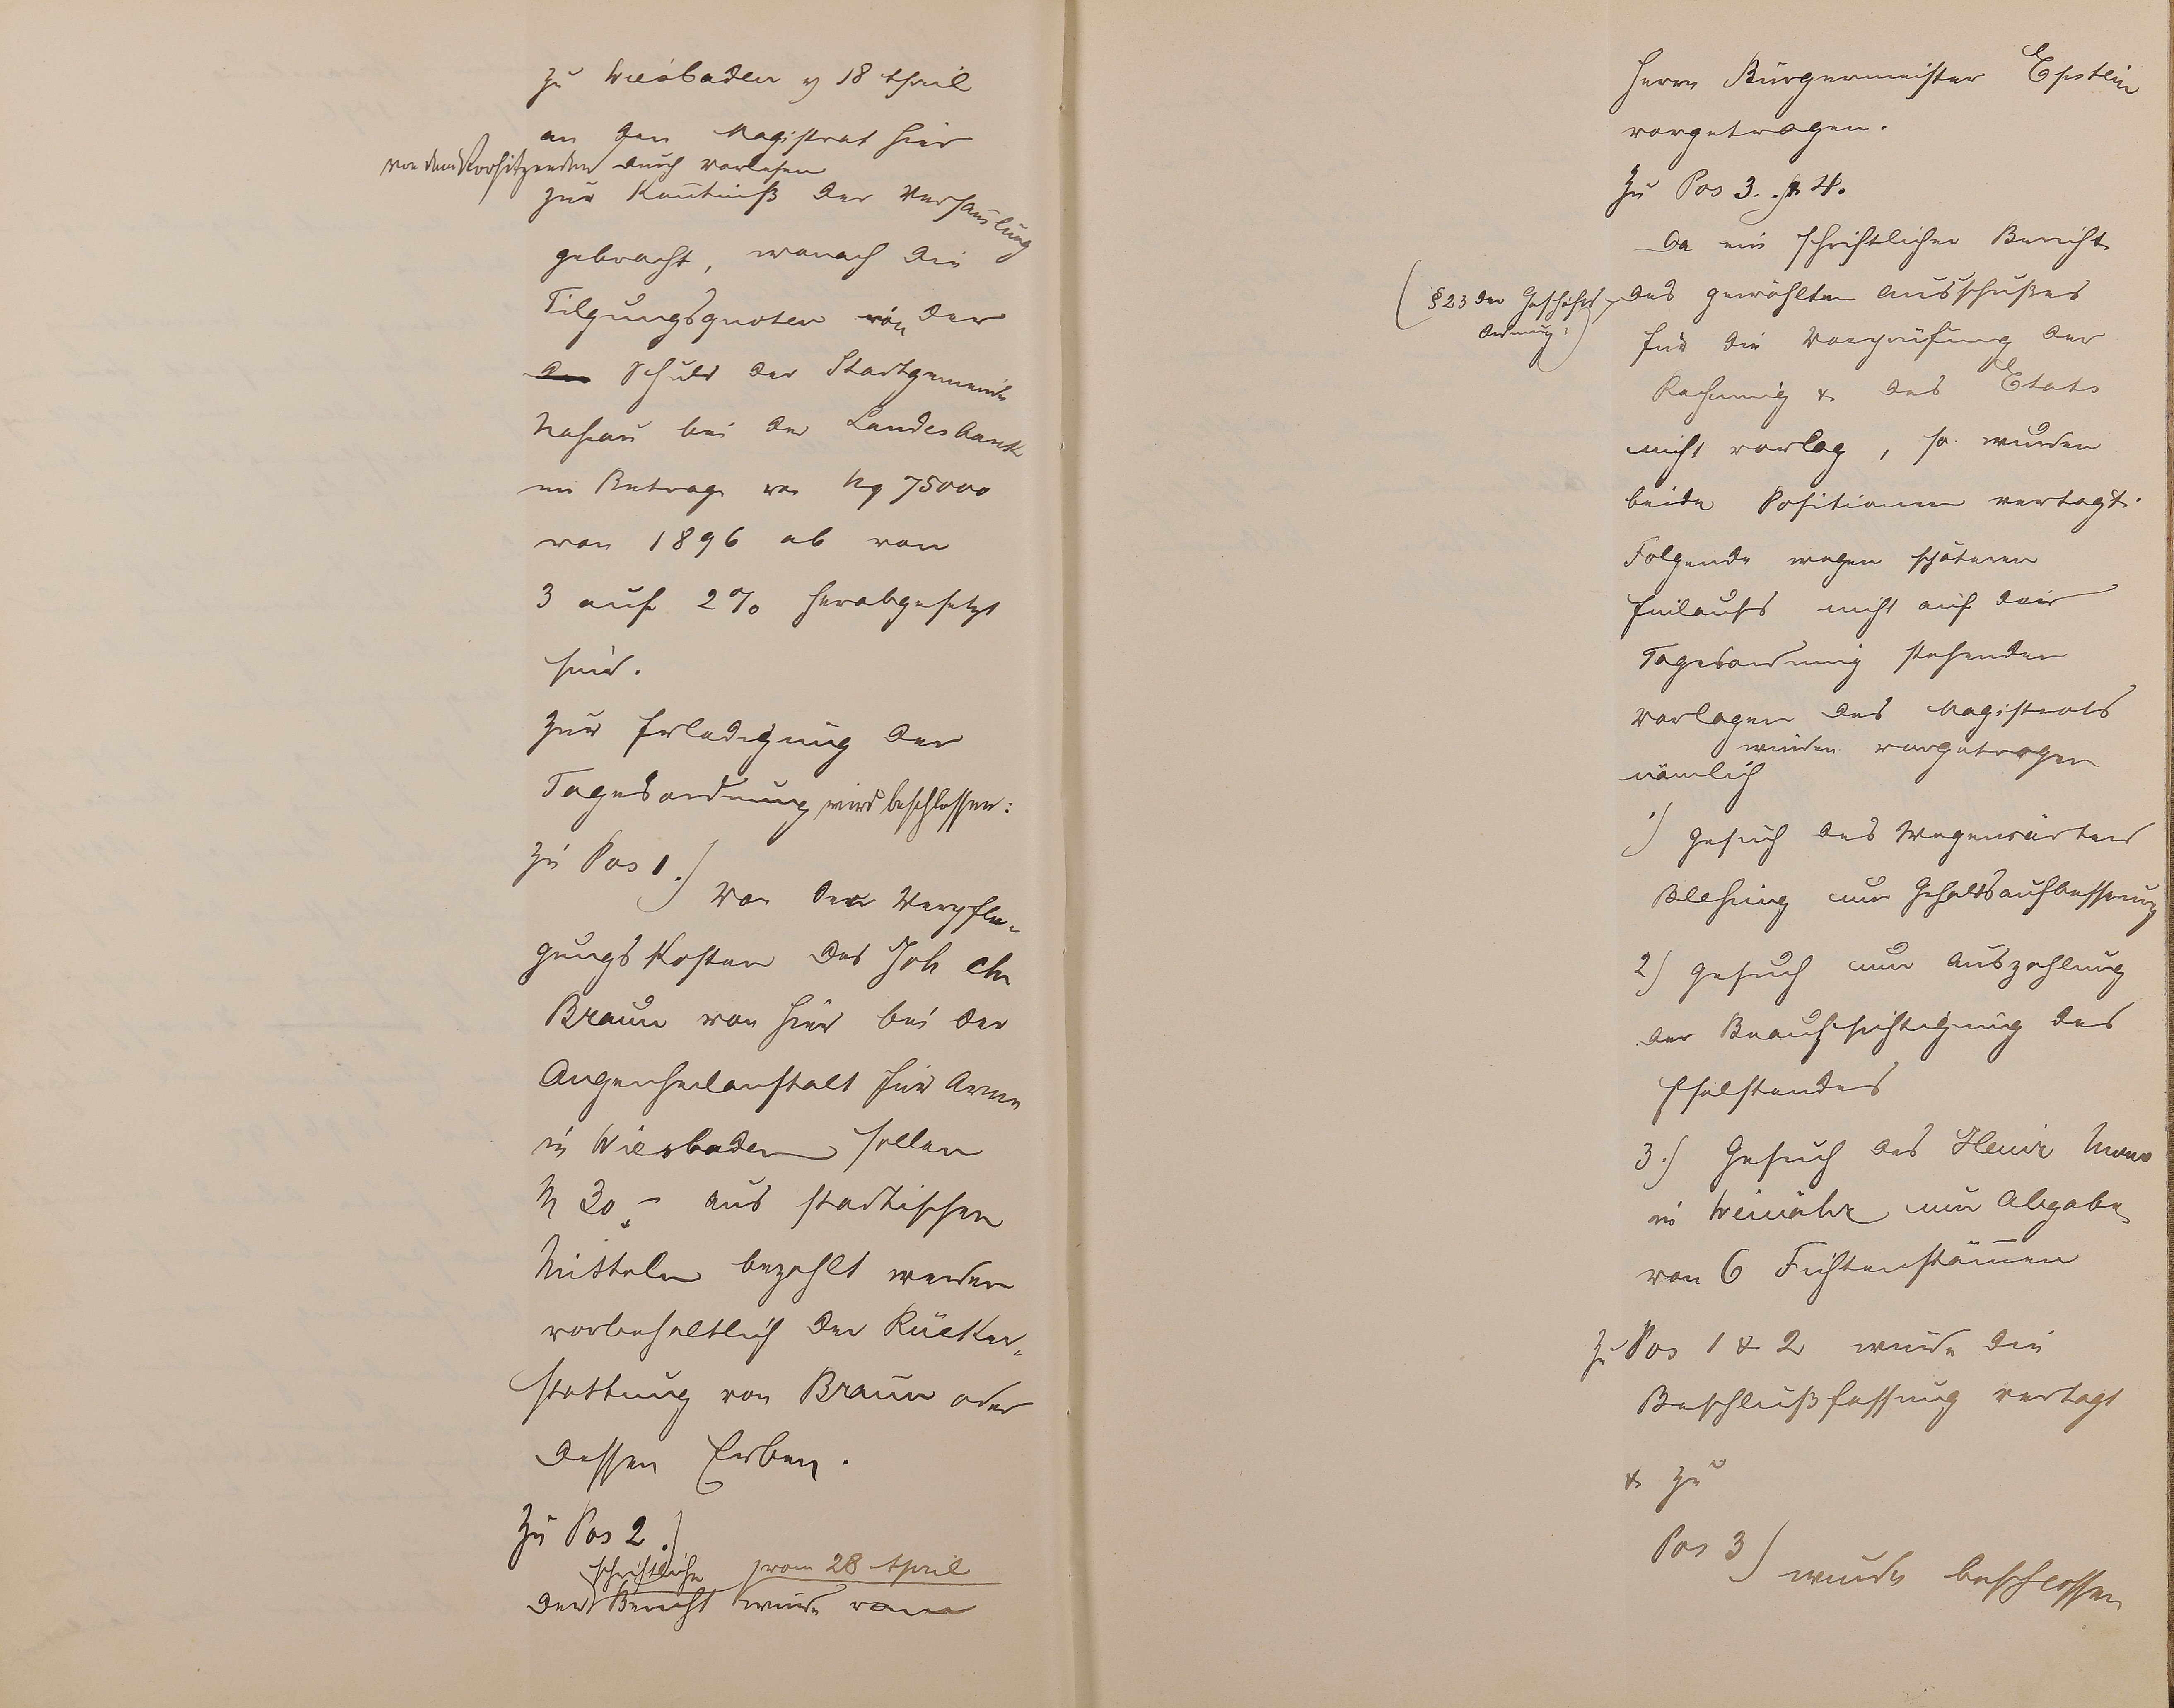 zu Wiesbaden v 18 April
an den Magistrat hier
von dem Vorsitzenden durch vorlesen
zur Kentniß der Versamlung
gebracht, wonach die
Tilgungsquoten von der
der Schuld der Stadtgemeinde
Naßau bei der Landesbank
im Betrage von Mk 75000
von 1896 ab von
3 auf 2% herabgesetzt
sind.
Zur Erledigung der
Tagesordnung wird beschlossen:
Zu Pos 1.)
Von den Verpfle-
gungskosten des Joh Chr
Braun von hier bei der
Augenheilanstalt für Arme
in Wiesbaden sollen
M 30,- aus städtischen
Mitteln bezahlt werden
vorbehaltlich der Rücker-
stattung von Braun oder
dessen Erben.
Zu Pos 2.)
schriftliche vom 28 April
Der Bericht wurde vom
Herrn Bürgermeister Epstein
vorgetragen.
Zu Pos 3. & 4.
Da ein schriftlicher Bericht
(§ 23 der Geschäfts
ordnung:)
des gewählten Ausschußes
für die Vorprüfung der
Rechnung & des Etats
nicht vorlag, so wurden
beide Positionen vertagt.
Folgende wegen späteren
Einlaufs nicht auf der
Tagesordnung stehenden
Vorlagen des Magistrats
wurden vorgetragen
nämlich
1) Gesuch des Wegewärters
Bleßing um Gehaltsaufbesserung
2) Gesuch um Auszahlung
der Beaufsichtigung des
Eselstandes
3.) Gesuch des Heinr
in Weinähr um Abgabe
von 6 Fichtenstämen
Zu Pos 1 & 2 wurde die
Beschlußfassung vertagt
& zu
Pos 3) wurde beschlossen